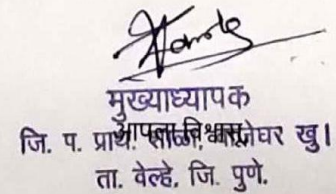 मुख्याध्यापक
आपला विश्वासू,
जि. प. प्राथ. शाळा, घर खु।
ता. वेल्हे, जि. पुणे.